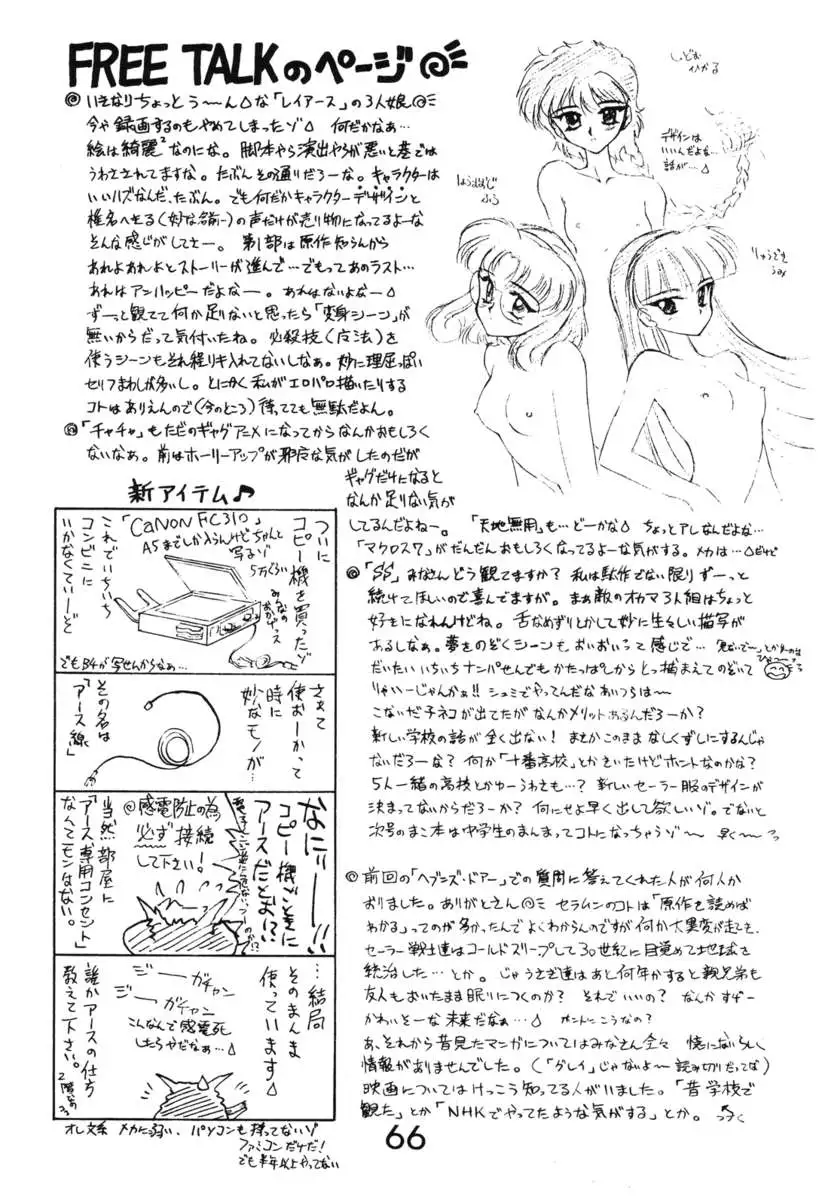 FREE TALKのページ
◎いきなりちょっとう〜ん△な「レイアース」の3人娘
今や録画するのもやめてしまったゾ△ 何だかなぁ…
絵は綺麗²なのにな。脚本やら演出やらが悪いと巷では
うわさされてますな。たぶんその通りだろーな。キャラクターは
いいハズなんだ、たぶん。でも何だかキャラクターデザインと
椎名へきる(妙な名前ー)の声だけが売り物になってるよーな
そんな感じがしてさー。第1部は原作知らんから
あれよあれよとストーリーが進んで…でもってあのラスト…
あれはアンハッピーだよなー。あれはないよなー△
ずーっと観てて何か足りないと思ったら「変身シーン」が
無いからだって気付いたね。必殺技(魔法)を
使うシーンもそれ程リキ入れてないしなぁ。妙に理屈っぽい
セリフまわしが多いし。とにかく私がエロパロ描いたりする
コトはありえんので(今のところ)待ってても無駄だよん。
◎「チャチャ」もただのギャグアニメになってからなんかおもしろく
ないなぁ。前はホーリーアップが邪魔な気がしたのだが
ギャグだけになると
なんか足りない気が
してるんだよねー。「天地無用」も…どーかな△ ちょっとアレなんだよな…
「マクロス7」がだんだんおもしろくなってるよーな気がする。メカは…△だけど
しどう
ひかる
デザインは
いいんだよな…
話が…△
ほうおうじ
ふう
りゅうざき
うみ
新アイテム♪
ついに
コピー機を買ったゾ
「CANON FC310」
A5までしか入らんけどちゃんと
写るゾ
5万ぐらい
みんなの
おかげっス
これでいちいち
コンビニに
いかなくていーゾと
でもB4が写せんからなぁ…
さぁて
使おーかって
時に
妙なモノが…
その名は
「アース線」
なにィーーー!!
コピー機ごときに
アースだとぉ!?
◎感電防止の為
必ず接続
して下さい!
当然部屋に
「アース専用コンセント」
なんてモンはない。
…結局
そのまんま
使っています△
ジーーガチャン
ジーーガチャン
こんなんで感電死
したらやだなぁ…△
誰かアースの仕方
教えて下さい。
2階なの
オレ文系 メカに弱い、パソコンも持ってないゾ
ファミコンだけだ!
でも半年以上やってない
◎「SS」みなさんどう観てますか? 私は駄作でない限りずーっと
続けてほしいので喜んでますが。まぁ敵のオカマ3人組はちょっと
好きになれんけどね。舌なめずりとかして妙に生々しい描写が
あるしなぁ。夢をのぞくシーンもおいおいって感じで…
だいたいいちいちナンパせんでもかたっぱしからとっ捕まえてのぞいて
りゃいーじゃんかぁ!! シュミでやってんだなあいつらは〜
こないだ子ネコが出てたがなんかメリットあるんだろーか?
新しい学校の話が全く出ない! まさかこのままなしくずしにするんじゃ
ないだろーな? 何か「十番高校」とかきいたけどホントなのかな?
5人一緒の高校とかゆーうわさも…? 新しいセーラー服のデザインが
決まってないからだろーか? 何にせよ早く出して欲しいゾ。でないと
次号のまこ本は中学生のまんまってコトになっちゃうゾ〜 早く〜
◎前回の「ヘブンズ・ドアー」での質問に答えてくれた人が何人か
おりました。ありがとさん セラムンのコトは「原作を読めば
わかる」ってのが多かったんでよくわからんのですが何か大異変が起きて、
セーラー戦士達はコールドスリープして30世紀に目覚めて地球を
統治した…とか。じゃあうさぎ達はあと何年かすると親兄弟も
友人もおいたまま眠りにつくのか? それでいいの? なんかすげー
かわいそーな未来だなぁ…△ ホントにこうなの?
あ、それから昔見たマンガについてはみなさん全々 情ないらしく
情報がありませんでした。(「グレイ」じゃないよ〜読み切りだってな)
映画についてはけっこう知ってる人がいました。「昔学校で
観た」とか「NHKでやってたような気がする」とか。つづく
66